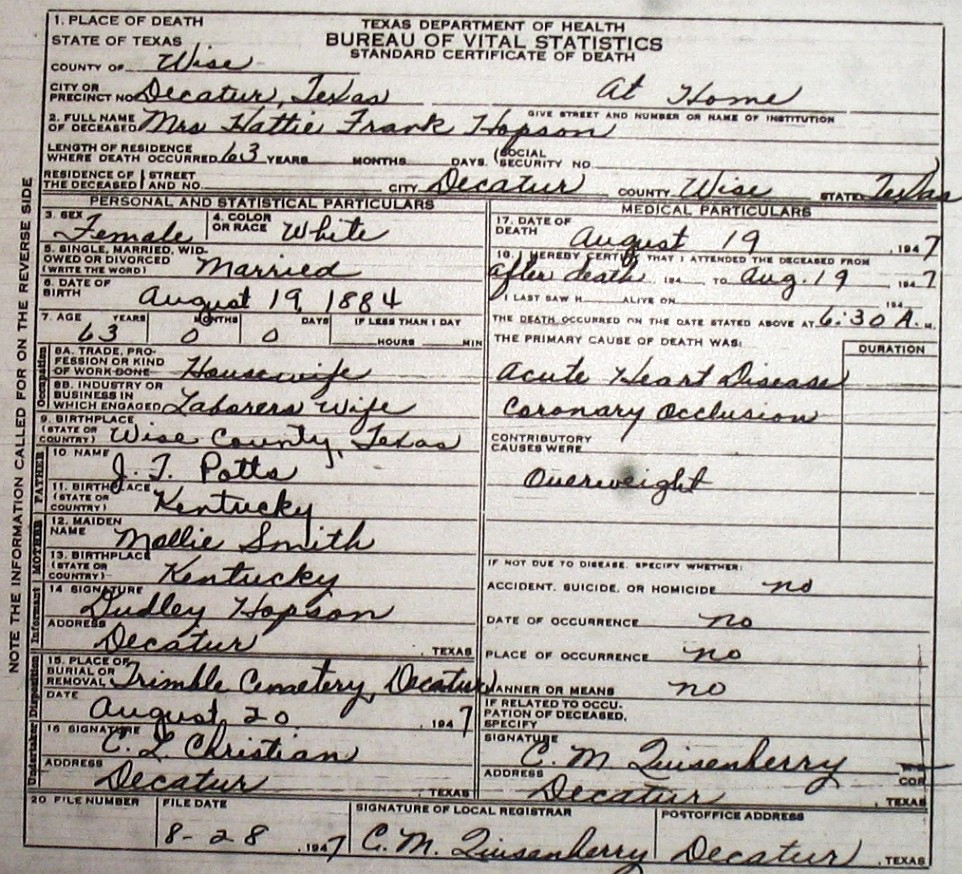 TEXAS DEPARTMENT OF HEALTH
BUREAU OF VITAL STATISTICS
STANDARD CERTIFICATE OF DEATH
NOTE THE INFORMATION CALLED FOR ON THE REVERSE SIDE
1. PLACE OF DEATH
STATE OF TEXAS
COUNTY OF Wise
CITY OR PRECINCT NO. Decatur, Texas At Home
GIVE STREET AND NUMBER OR NAME OF INSTITUTION
2. FULL NAME OF DECEASED Mrs Hattie Frank Hopson
LENGTH OF RESIDENCE WHERE DEATH OCCURRED 63 YEARS MONTHS DAYS. (SOCIAL SECURITY NO. )
RESIDENCE OF THE DECEASED STREET AND NO. CITY Decatur COUNTY Wise STATE Texas
PERSONAL AND STATISTICAL PARTICULARS
3. SEX Female 4. COLOR OR RACE White
5. SINGLE, MARRIED, WIDOWED OR DIVORCED (WRITE THE WORD) Married
6. DATE OF BIRTH August 19, 1884
7. AGE YEARS MONTHS DAYS IF LESS THAN 1 DAY
63 0 0 HOURS MIN
Occupation
8A. TRADE, PROFESSION OR KIND OF WORK DONE Housewife
8B. INDUSTRY OR BUSINESS IN WHICH ENGAGED Laborers Wife
9. BIRTHPLACE (STATE OR COUNTRY) Wise County, Texas
FATHER
10 NAME J. T. Potts
11. BIRTHPLACE (STATE OR COUNTRY) Kentucky
MOTHER
12. MAIDEN NAME Mollie Smith
13. BIRTHPLACE (STATE OR COUNTRY) Kentucky
Informant
14 SIGNATURE Dudley Hopson
ADDRESS Decatur, TEXAS
Disposition
15. PLACE OF BURIAL OR REMOVAL Trimble Cemetery, Decatur
DATE August 20, 1947
Undertaker
16 SIGNATURE C. L. Christian
ADDRESS Decatur, TEXAS
MEDICAL PARTICULARS
17. DATE OF DEATH August 19 1947
I HEREBY CERTIFY THAT I ATTENDED THE DECEASED FROM
after death 194 TO Aug. 19 1947
I LAST SAW H ALIVE ON 194
THE DEATH OCCURRED ON THE DATE STATED ABOVE AT 6:30 A. M.
THE PRIMARY CAUSE OF DEATH WAS: DURATION
Acute Heart Disease
Coronary Occlusion
CONTRIBUTORY CAUSES WERE
Overweight
IF NOT DUE TO DISEASE, SPECIFY WHETHER:
ACCIDENT, SUICIDE, OR HOMICIDE no
DATE OF OCCURRENCE no
PLACE OF OCCURRENCE no
MANNER OR MEANS no
IF RELATED TO OCCUPATION OF DECEASED, SPECIFY
SIGNATURE C. M. Quisenberry COR.
ADDRESS Decatur, TEXAS
20 FILE NUMBER FILE DATE SIGNATURE OF LOCAL REGISTRAR POSTOFFICE ADDRESS
8-28, 1947 C. M. Quisenberry Decatur, TEXAS